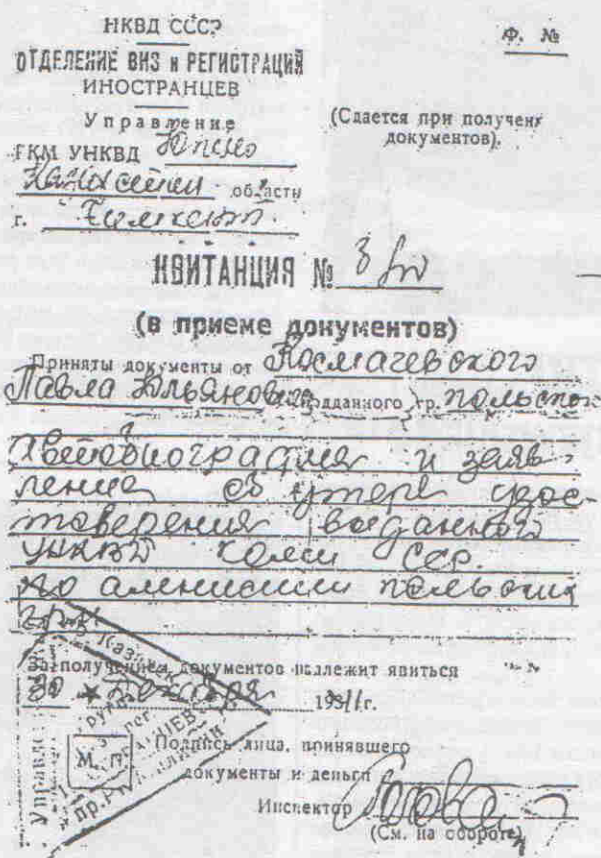 НКВД СССР
Ф. №
ОТДЕЛЕНИЕ ВИЗ и РЕГИСТРАЦИЙ
ИНОСТРАНЦЕВ
Управление
(Сдается при получен
документов).
РКМ УНКВД Южно
Казахстан области
г. Чимкент
КВИТАНЦИЯ №
(в приеме документов)
Приняты документы от Космачевского
Павла Юльяновича подданного гр. польской
Автобиография и заяв-
ление об утере удос-
товерения выданного
УНКВД Коми ССР.
по амнистии польских
гр-н
За получением документов надлежит явиться
30 декабря 1941 г.
М. П.
Подпись лица, принявшего
документы и деньги
Инспектор
(См. на обороте)